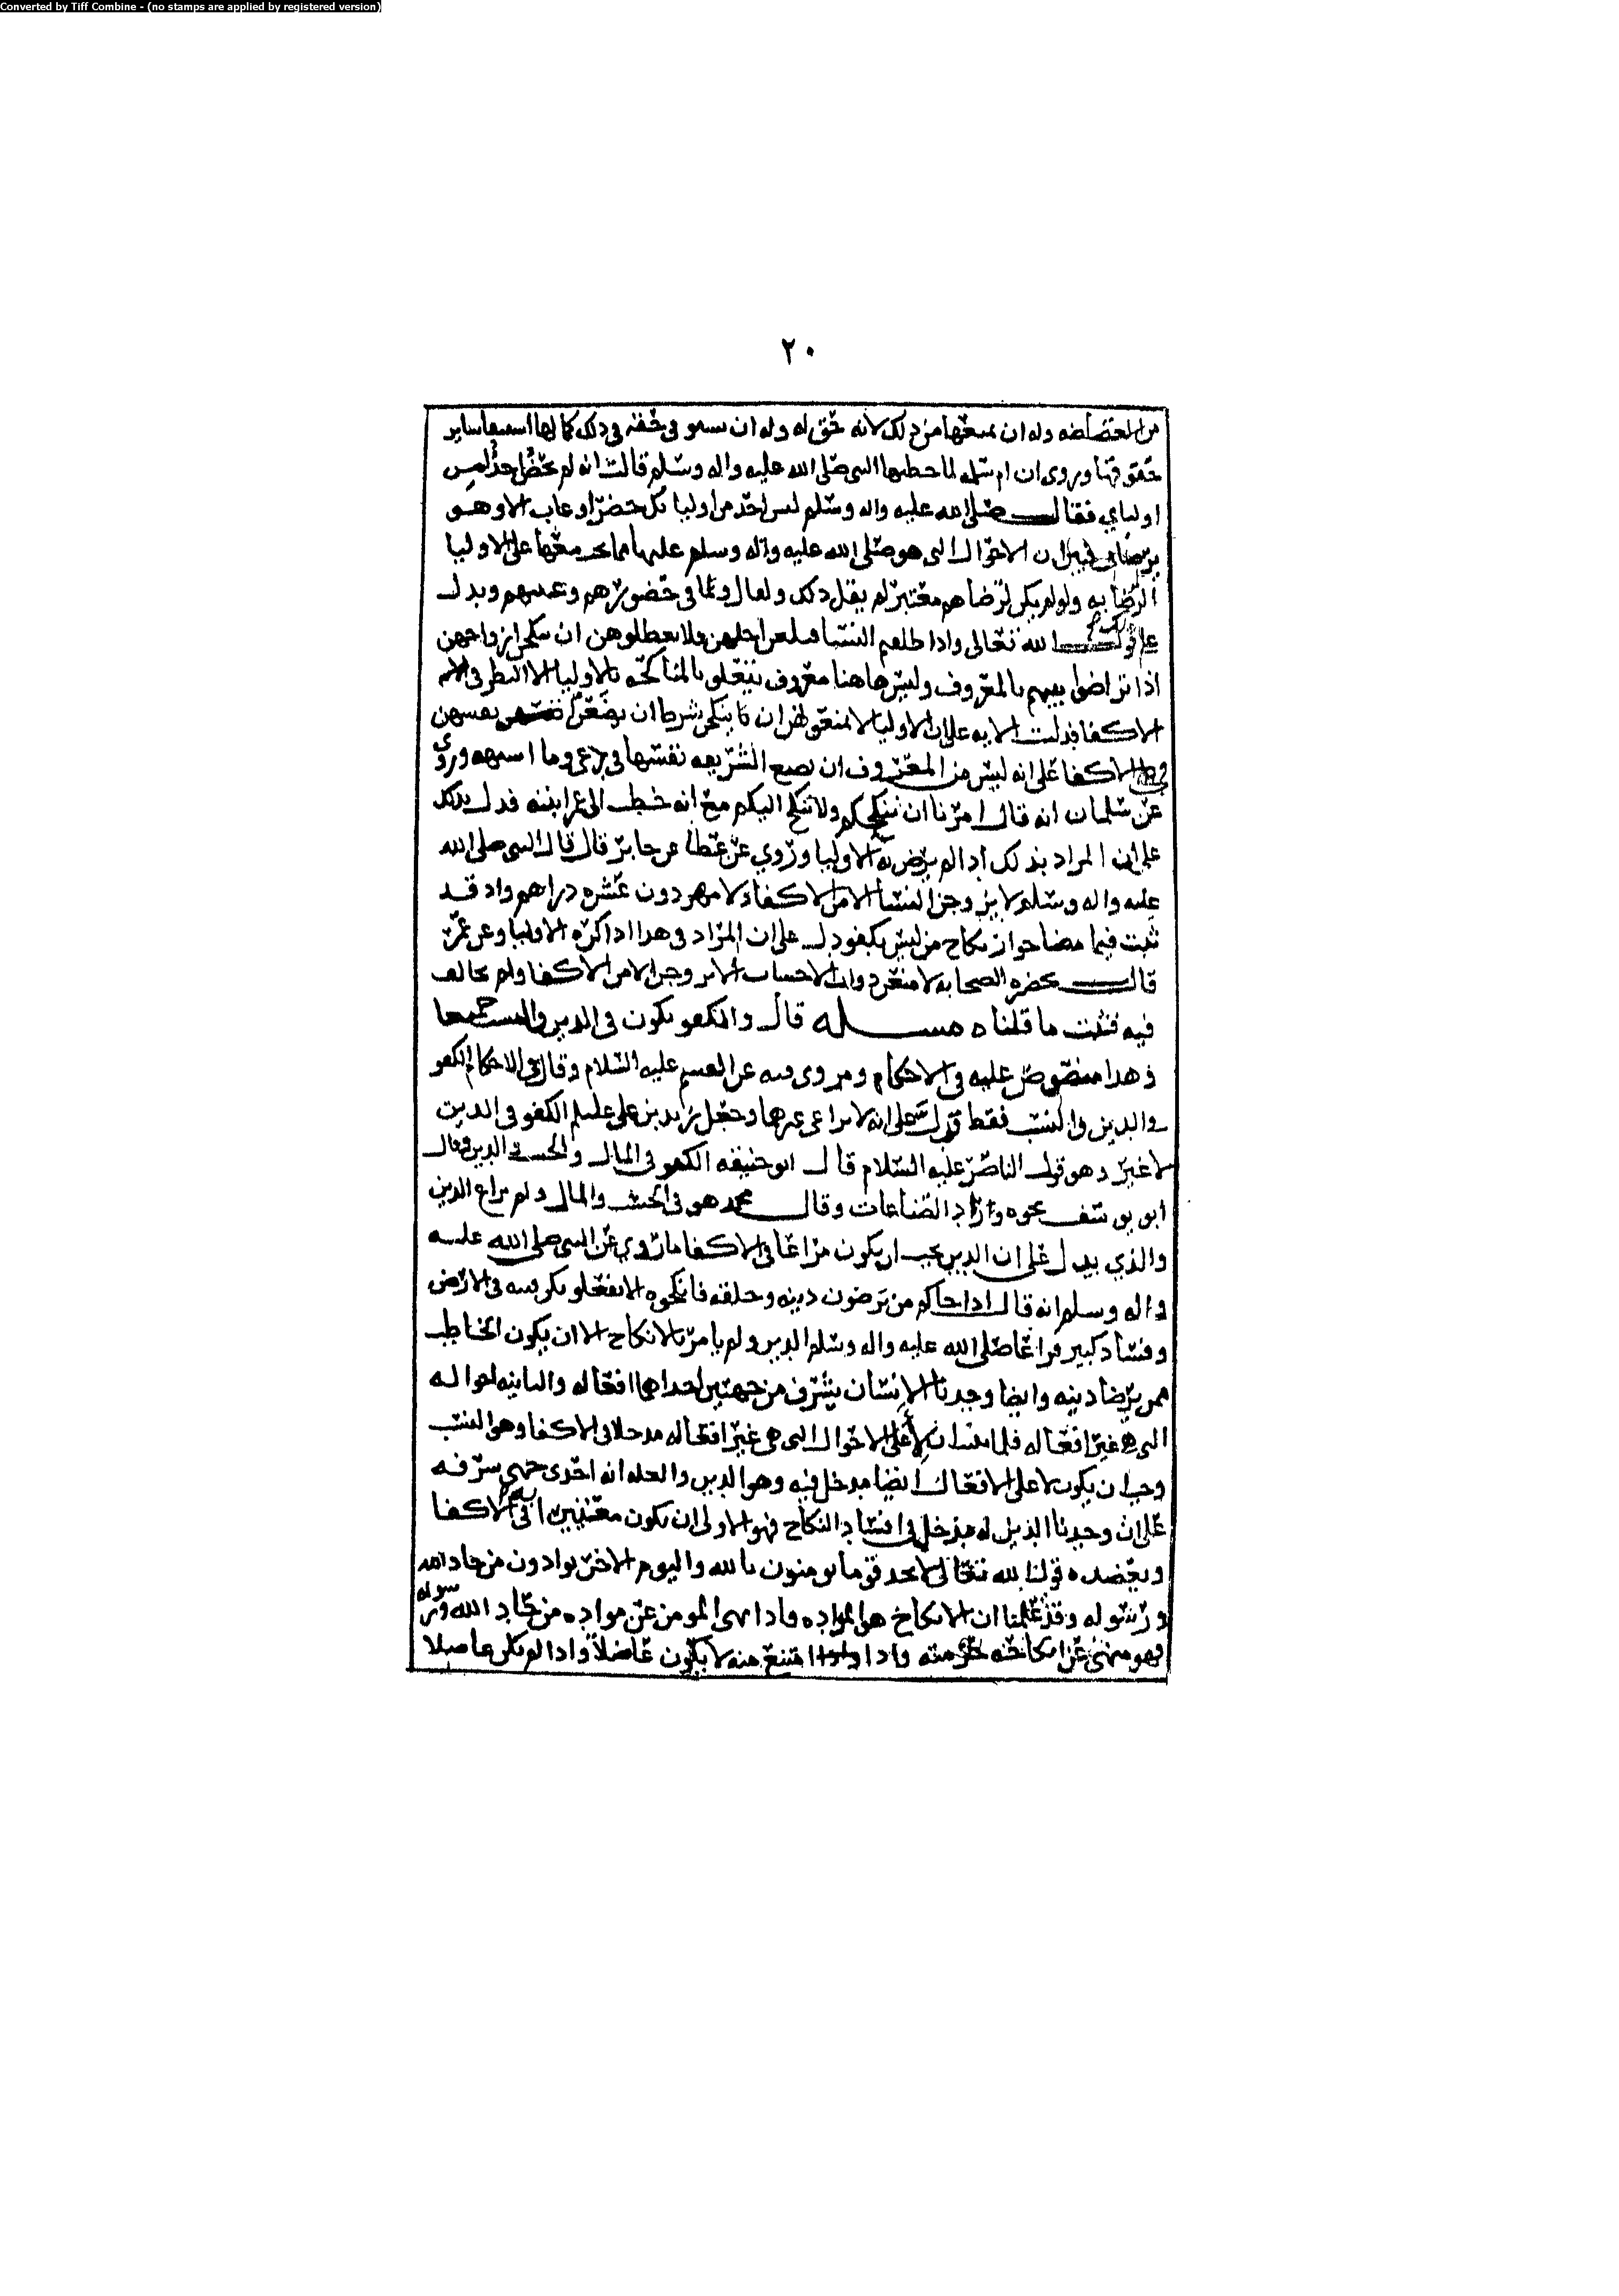 Converted by Tiff Combine - (no stamps are applied by registered version)
٢٠
من الغضاضه وله ان يمنعها من ذلك لانه حق له وله ان يستوفي حقه في ذلك كما لها استيفا ساير
حقوقها وروى ان ام سلمه لما خطبها النبي صلى الله عليه واله وسلم قالت انه لم يحضر احد من
اوليايي فقال صلى الله عليه واله وسلم ليس احد من اوليايك حضر او غاب الا وهو
يرضاني فبين ان الاحوال التي هو صلى الله عليه واله وسلم عليها مما يجب معها على الاوليا
الرضا به ولو لم يكن لرضاهم معتبر لم يقل ذلك ولقال وما في حضورهم وغيبتهم ويدل
على قول الله تعالى واذا طلقتم النسا فبلغن اجلهن فلا تعضلوهن ان ينكحن ازواجهن
اذا تراضوا بينهم بالمعروف وليس هاهنا معروف يتعلق بالمناكحه بالاوليا الا النظر في
الاكفا فدلت الايه على ان الاوليا لا يمنعوهن ان ينكحن بشرط ان يضعن انفسهن
الاكفا على انه ليس من المعروف ان تضع الشريفه نفسها في دعي وما اشبهه وروى
عن سلمان انه قال امرنا ان ننكحكم ولا ننكح اليكم مع انه خطب الى عمر ابنته فدل بذلك
على ان المراد بذلك اذا لم يرض به الاوليا وروي عن عطا عن جابر قال قال النبي صلى الله
عليه واله وسلم لا يزوجن النسا الا من الاكفا ولا مهر دون عشره دراهم واذ قد
ثبت فيما مضا جواز نكاح من ليس بكفو دل على ان المراد في هذا اذا كره الاوليا وعن عمر
قال بحضره الصحابه لامنعن ذوات الاحساب الا يزوجن الا من الاكفا ولم يخالف
فيه فثبت ما قلناه مسله قال والكفو يكون في الدين والنسب جميعا
وهذا منصوص عليه في الاحكام ومروى فيه عن القسم عليه السلام وقال في الاحكام الكفو
في الدين والنسب فقط فدل على انه لا يراعى غيرها وجعل زيد بن علي عليلم الكفو في الدين
لا غير وهو قول الناصر عليه السلام قال ابو حنيفه الكفو في المال والحسب والدين وقال
ابو يوسف نحوه وزاد الصناعات وقال محمد هو في الحسب والمال ولم يراع الدين
والذي يدل على ان الدين يجب ان يكون مراعا في الاكفا ما روي عن النبي صلى الله عليه
واله وسلم انه قال اذا جاكم من ترضون دينه وخلقه فانكحوه الا تفعلو تكن فتنه في الارض
وفساد كبير فراعا صلى الله عليه واله وسلم الدين ولم يامر بالانكاح الا ان يكون الخاطب
ممن يرضا دينه وايضا وجدنا الانسان يشرف من جهتين احداهما افعاله والثانيه احواله
التي هي غير افعاله فلما كان لاعلى الاحوال التي هي غير افعاله مدخلا في الاكفا وهو النسب
وجب ان يكون لاعلى الافعال ايضا مدخل فيه وهو الدين والعله انه احدى جهتي شرفه
على ان وجدنا الدين له مدخل في افساد النكاح فهو الاولى ان يكون معتبرا به في الاكفا
ويعضده قول الله تعالى لا تجد قوما يومنون بالله واليوم الاخر يوادون من حاد الله
ورسوله وقد علمنا ان الانكاح هو المواده فاذا نهى المومن عن مواده من حاد الله ورسوله
فهو منهي عن انكاحه حرمته واذا امتنع منه لا يكون عاضلا واذا لم يكن عاضلا